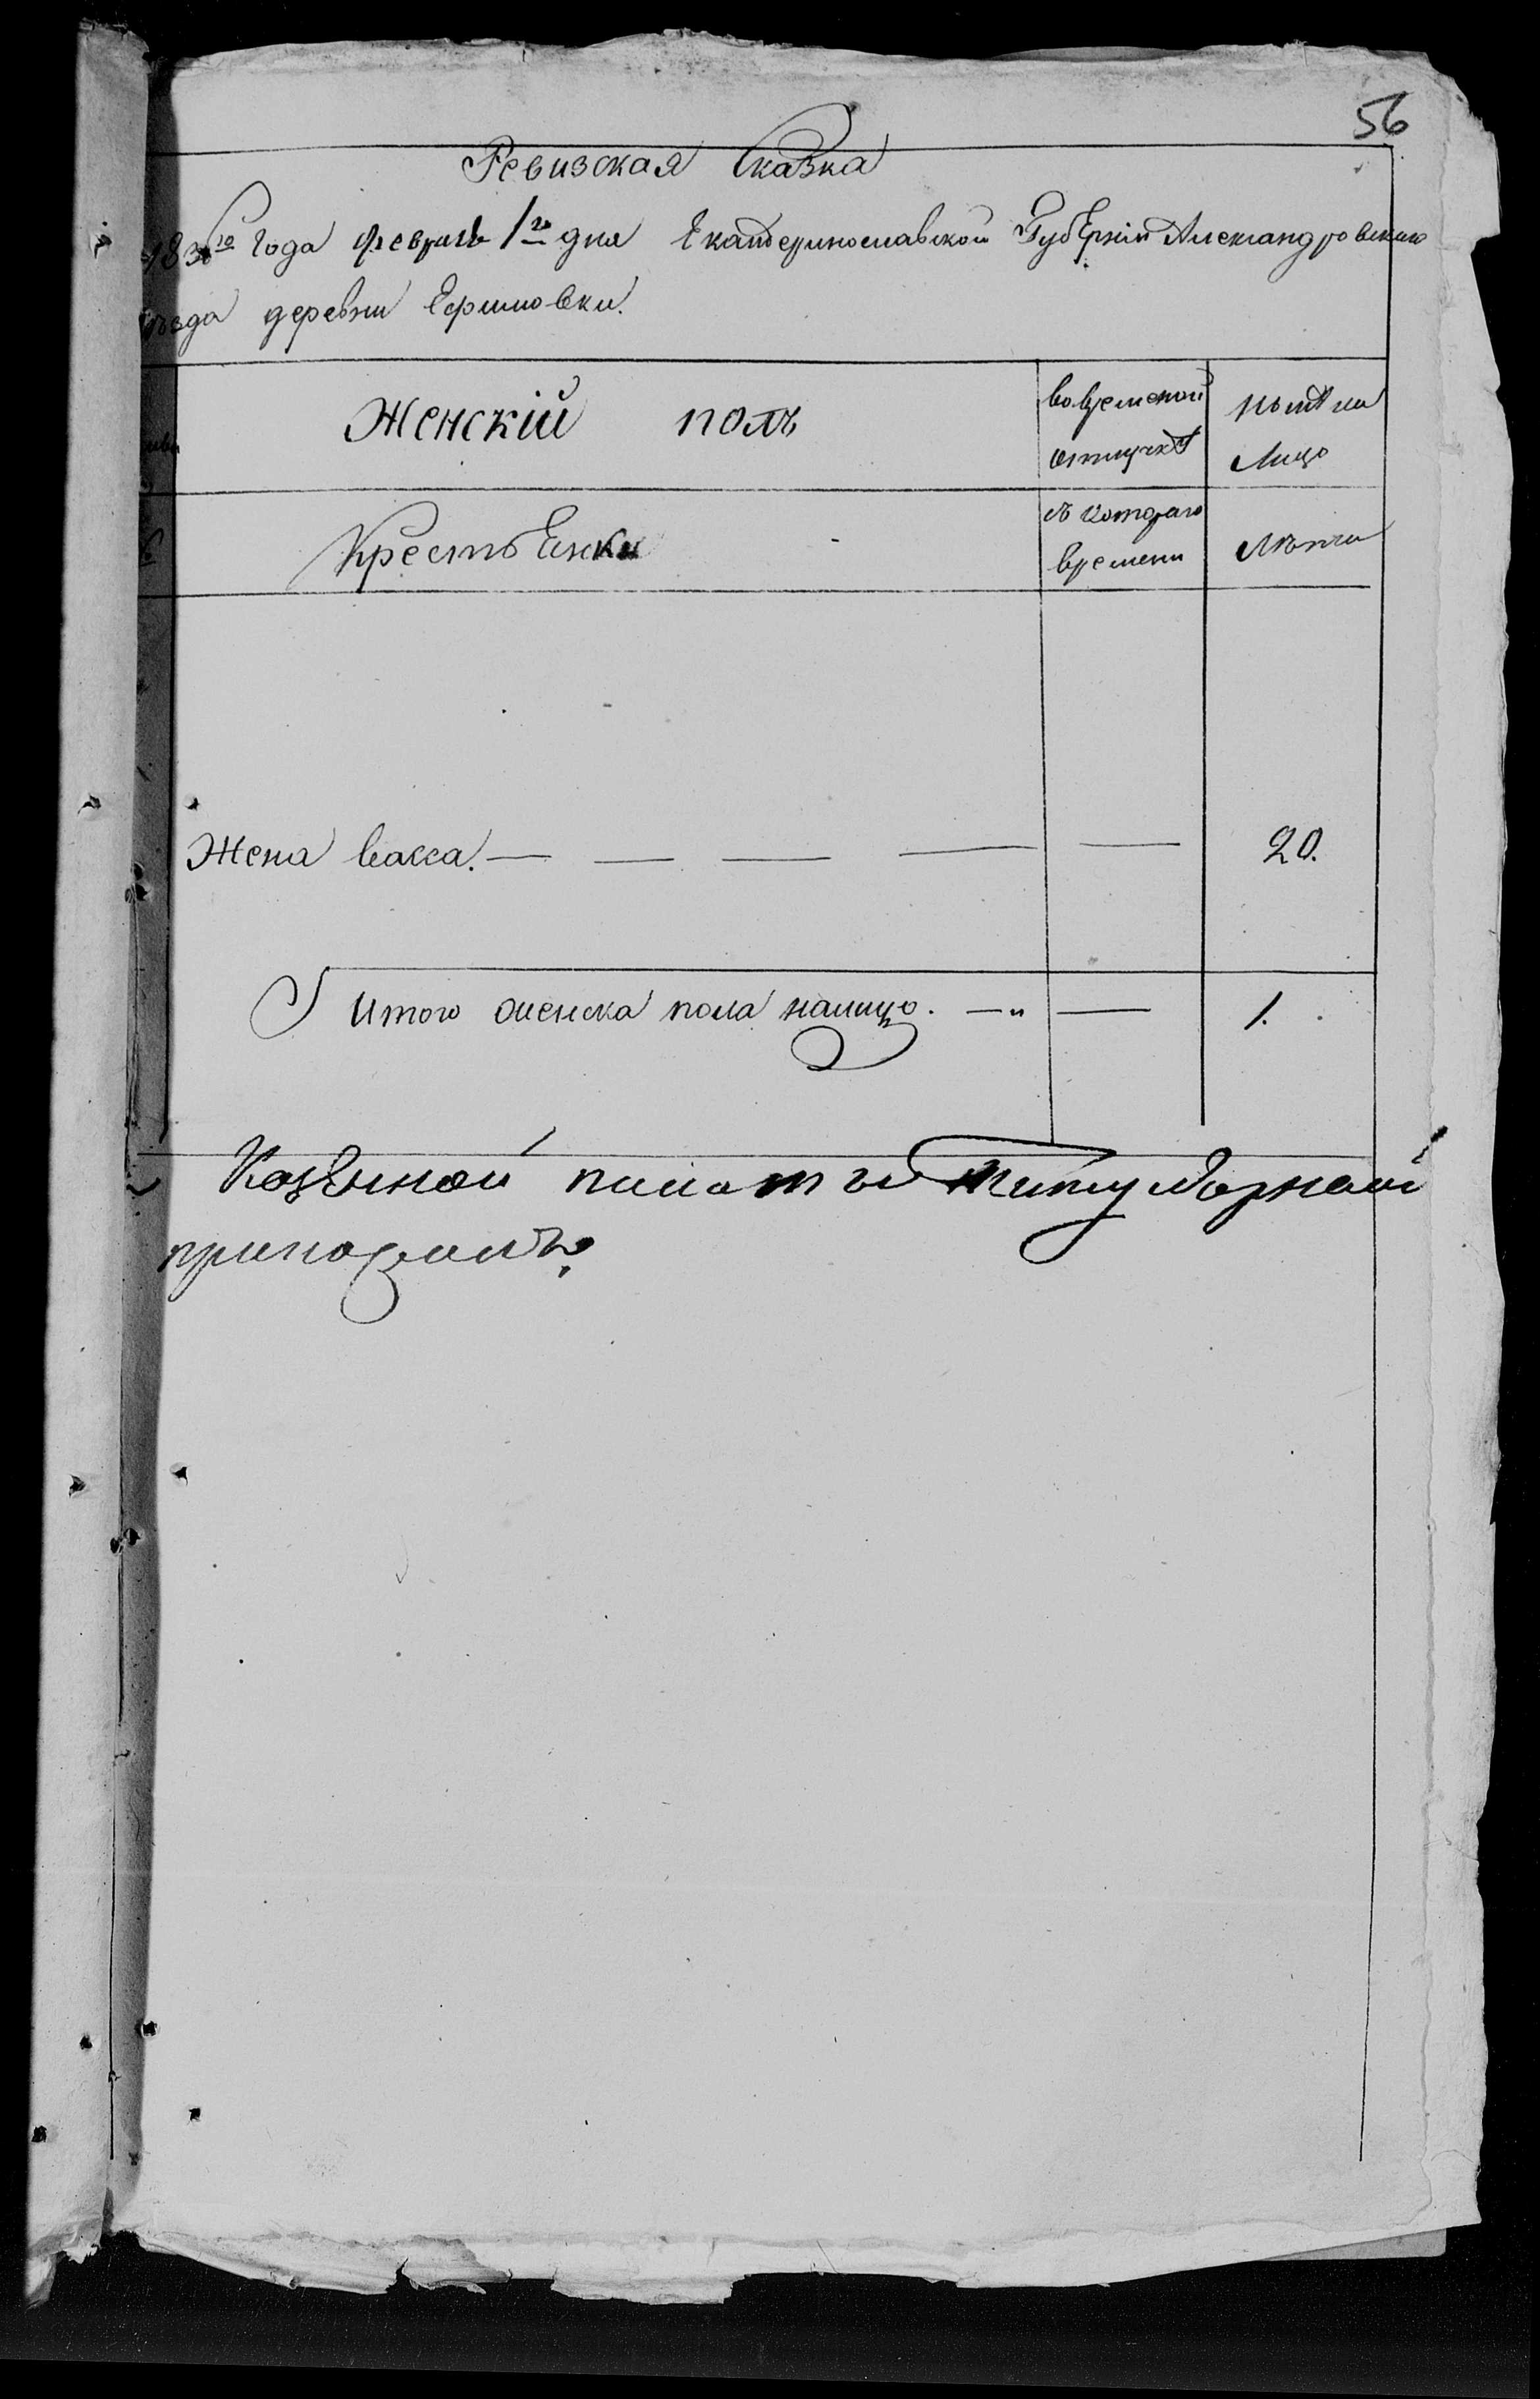 56
Ревизская Сказка
183 го года февраля 1го дня Екатеринославской Губернии Александровскаго
уезда деревни Ефимовки.
Женскій полъ
во временой
отлучке
ныне на
Лицо
Крестьенки
съ котораго
времени
Лѣты
Жена васса. — — — — — 20.
Итого женска пола налицо. — „ — 1.
Казенной палаты Титулярной